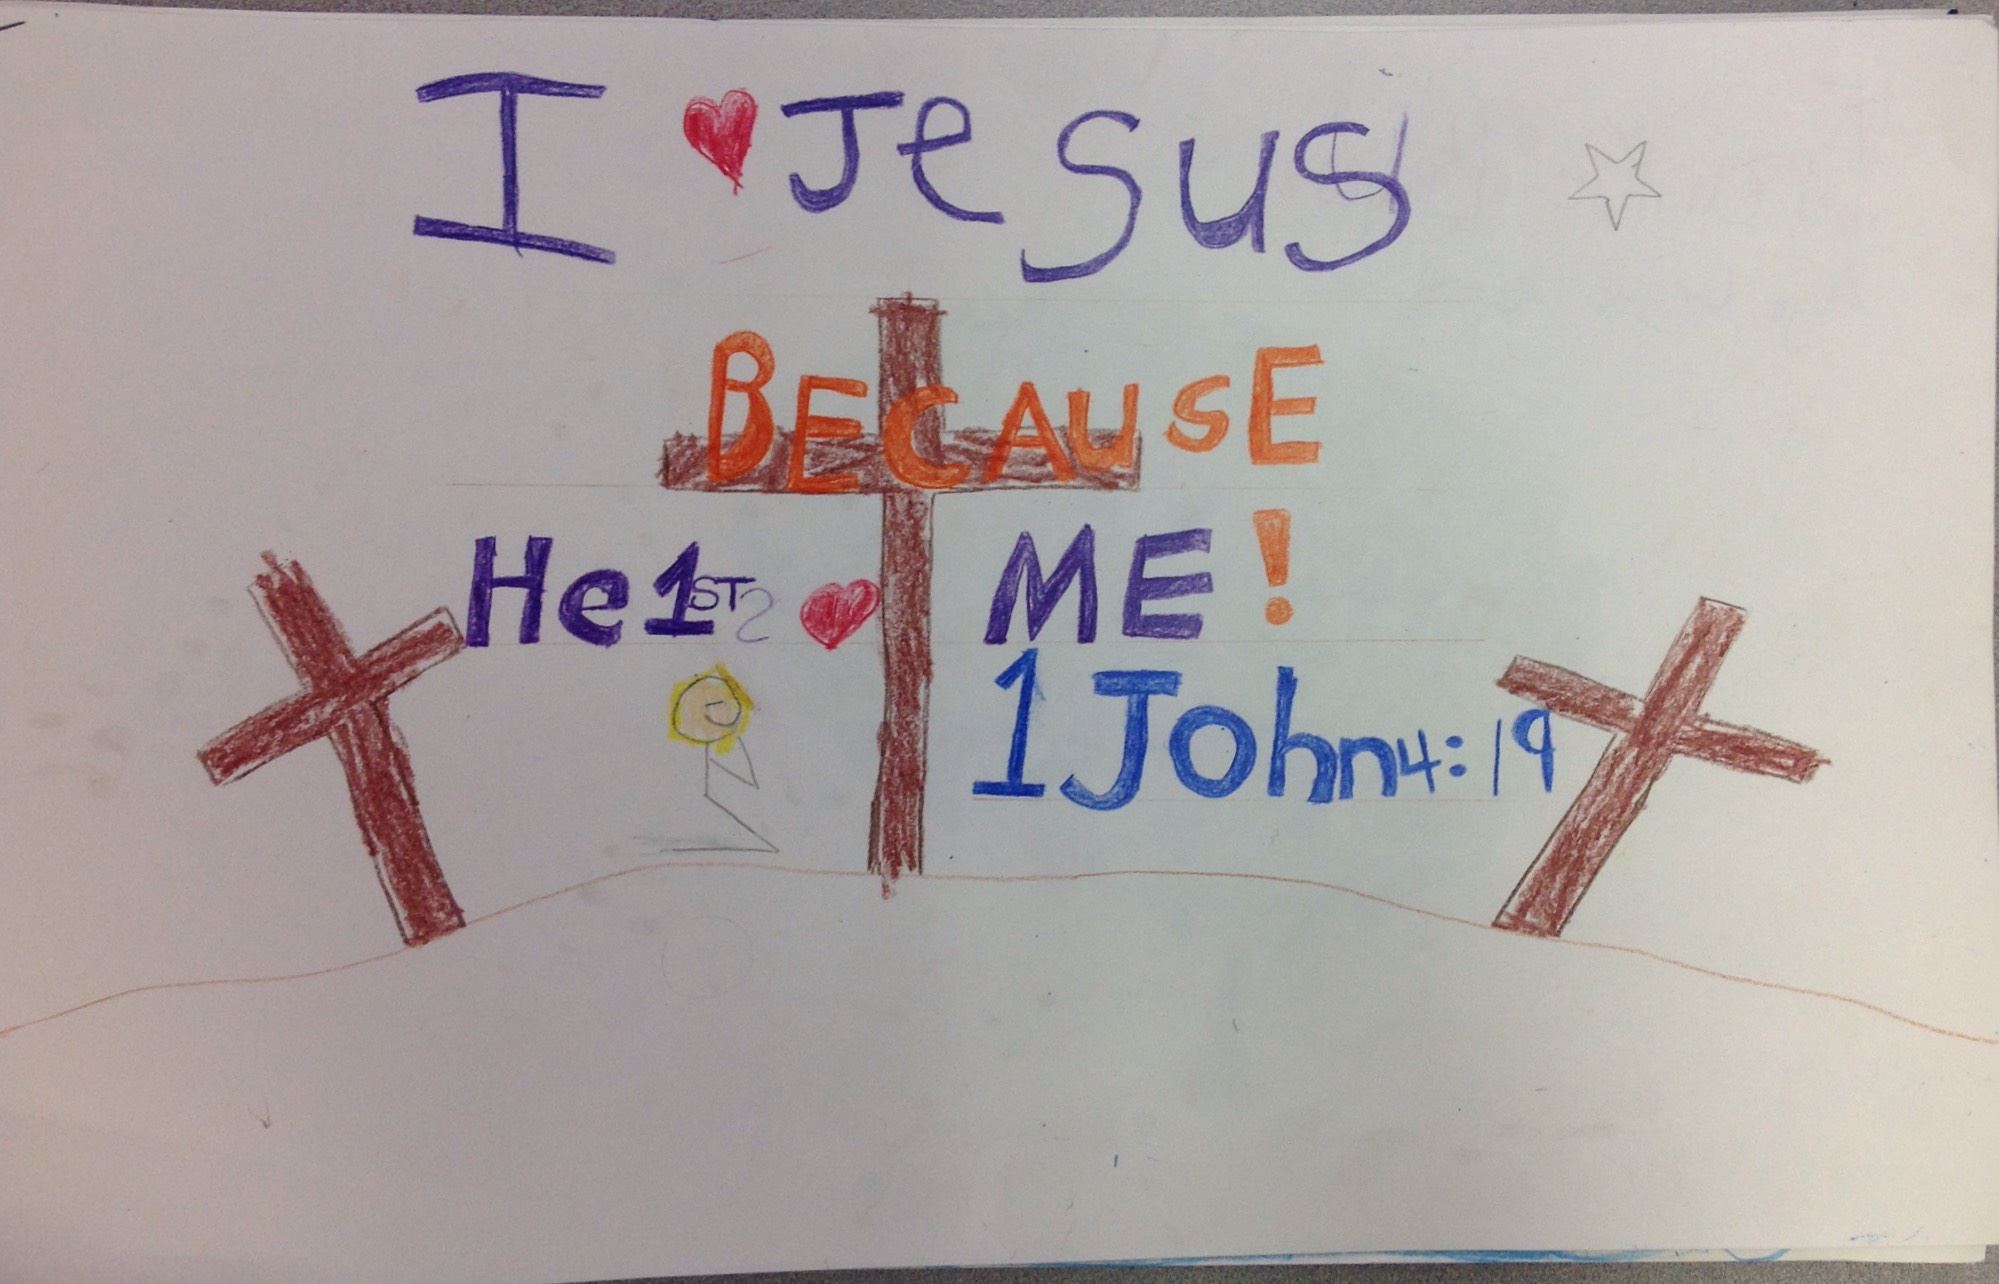 I ♥ Jesus
BECAUSE
He 1ST ♥ ME!
1 John 4:19